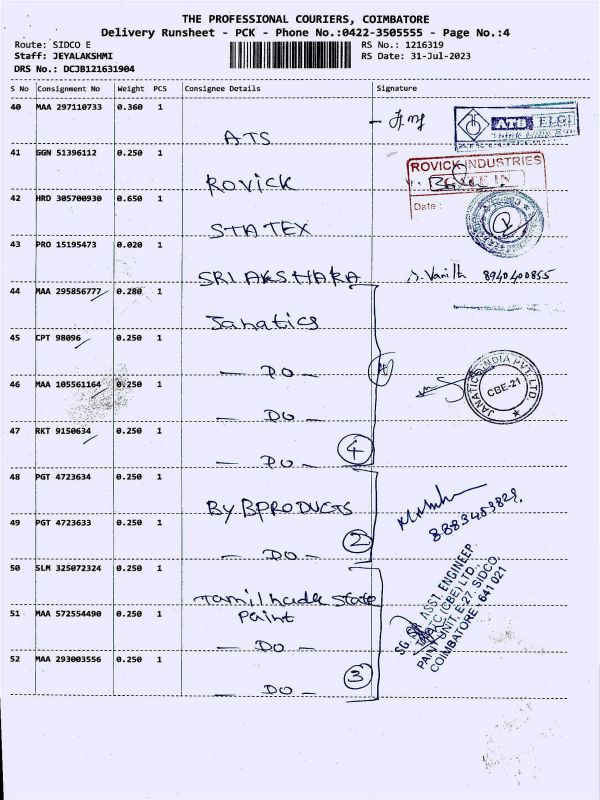 THE PROFESSIONAL COURIERS, COIMBATORE
Delivery Runsheet - PCK - Phone No.:0422-3505555 - Page No.:4
Route: SIDCO E
Staff: JEYALAKSHMI
DRS No.: DCJB121631904
RS No.: 1216319
RS Date: 31-Jul-2023
S No Consignment No Weight PCS Consignee Details Signature
40 MAA 297110733 0.360 1
ATS
ATS ELGI
41 GGN 51396112 0.250 1
ROVICK
ROVICK INDUSTRIES
Date :
42 HRD 305700930 0.650 1
STATEX
43 PRO 15195473 0.020 1
SRI AKSHARA
S. Vanith 8940400855
44 MAA 295856777 0.280 1
Janatics
45 CPT 98096 0.250 1
- DO -
46 MAA 105561164 0.250 1
- DO -
JANATICS INDIA PVT. LTD
CBE-21
47 RKT 9150634 0.250 1
- DO -
4
48 PGT 4723634 0.250 1
BY BPRODUCTS
49 PGT 4723633 0.250 1
- DO -
2
50 SLM 325072324 0.250 1
Tamilnadu State
Paint
51 MAA 572554490 0.250 1
- DO -
52 MAA 293003556 0.250 1
- DO -
3
ASST. ENGINEER
(CBE) LTD.,
PAINT UNIT, E-27, SIDCO,
COIMBATORE - 641 021